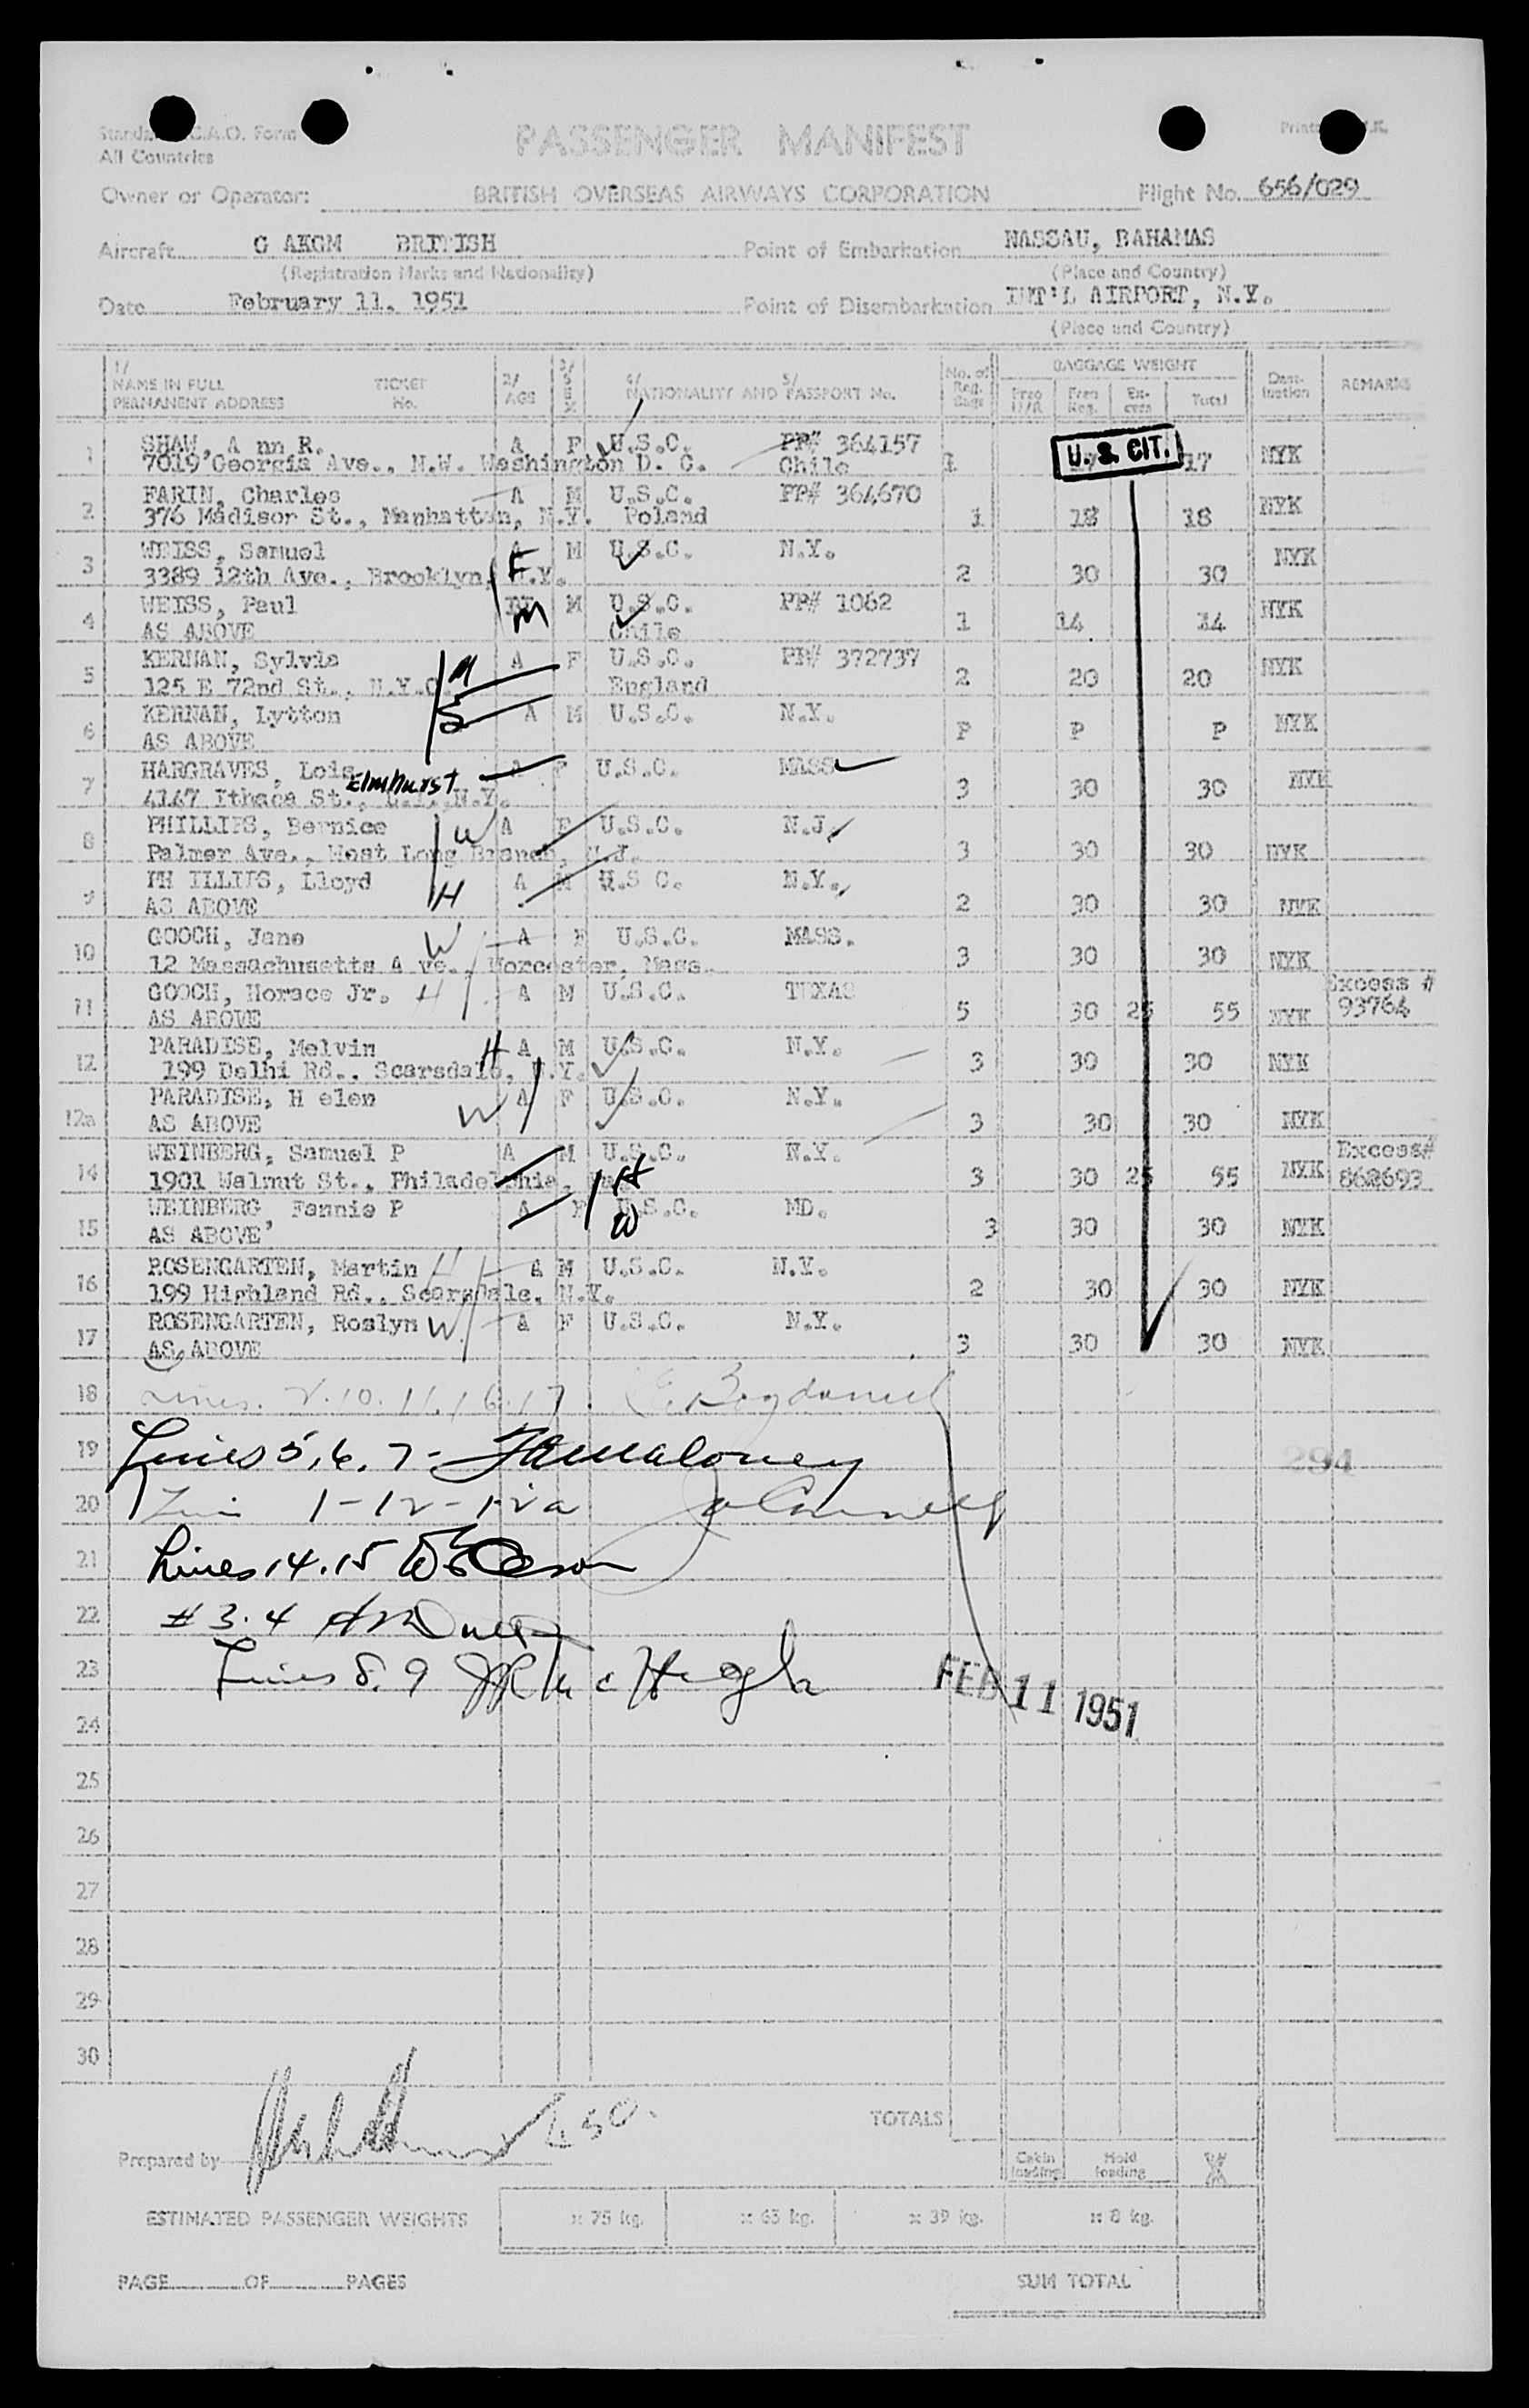 Standard I.C.A.O. Form
All Countries
PASSENGER MANIFEST
Owner or Operator: BRITISH OVERSEAS AIRWAYS CORPORATION Flight No. 656/029
Aircraft G AKGM BRITISH Point of Embarkation NASSAU, BAHAMAS
(Registration Marks and Nationality) (Place and Country)
Date February 11, 1951 Point of Disembarkation INT'L AIRPORT, N.Y.
(Place and Country)
1/ NAME IN FULL PERMANENT ADDRESS TICKET No. 2/ AGE 3/ SEX 4/ NATIONALITY AND 5/ PASSPORT No. No. of Reg. Bags BAGGAGE WEIGHT Free Reg. Ex-cess Total Dest-ination REMARKS
1 SHAW, A nn R. A F U.S.C. PP# 364157
7019 Georgia Ave., N.W. Washington D. C. Chile 1 U.S. CIT. 17 NYK
2 FARIN, Charles A M U.S.C. PP# 364670
376 Madison St., Manhattan, N.Y. Poland 1 18 18 NYK
3 WEISS, Samuel A M U.S.C. N.Y.
3389 12th Ave., Brooklyn, N.Y. F 2 30 30 NYK
4 WEISS, Paul M U.S.C. PP# 1062
AS ABOVE M Chile 1 14 14 NYK
5 KERNAN, Sylvia M A F U.S.C. PP# 372737
125 E 72nd St., N.Y.C. England 2 20 20 NYK
6 KERNAN, Lytton S A M U.S.C. N.Y.
AS ABOVE P P P NYK
7 HARGRAVES, Lois A F U.S.C. MASS
4147 Ithaca St., Elmhurst L.I., N.Y. 3 30 30 NYK
8 PHILLIPS, Bernice W A F U.S.C. N.J.
Palmer Ave., West Long Branch, N.J. 3 30 30 NYK
9 PH ILLIPS, Lloyd A M U.S C. N.Y.
AS ABOVE H 2 30 30 NYK
10 GOOCH, Jane W A F U.S.C. MASS.
12 Massachusetts A ve., Worcester, Mass. 3 30 30 NYK
11 GOOCH, Horace Jr. H A M U.S.C. TEXAS Excess #
AS ABOVE 5 30 25 55 NYK 93764
12 PARADISE, Melvin H A M U.S.C. N.Y.
199 Delhi Rd., Scarsdale, N.Y. 3 30 30 NYK
12a PARADISE, H elen W A F U.S.C. N.Y.
AS ABOVE 3 30 30 NYK
14 WEINBERG, Samuel P A M U.S.C. N.Y. Excess#
1901 Walnut St., Philadelphia, H 3 30 25 55 NYK 862693
15 WEINBERG, Fannie P A F U.S.C. MD.
AS ABOVE W 3 30 30 NYK
16 ROSENGARTEN, Martin H A M U.S.C. N.Y.
199 Highland Rd., Scarsdale, N.Y. 2 30 30 NYK
17 ROSENGARTEN, Roslyn W A F U.S.C. N.Y.
AS ABOVE 3 30 30 NYK
18 Lines. 2.10.11.16.17.
19 Lines 5,6,7- Maloney 294
20 1-12-12a
21 Lines 14.15
22 # 3.4
23 Lines 8.9 McHugh
FEB 11 1951
24
25
26
27
28
29
30
TOTALS
Prepared by
Cabin loading Hold loading
ESTIMATED PASSENGER WEIGHTS x 75 kg. x 65 kg. x 39 kg. x 8 kg.
PAGE OF PAGES SUM TOTAL